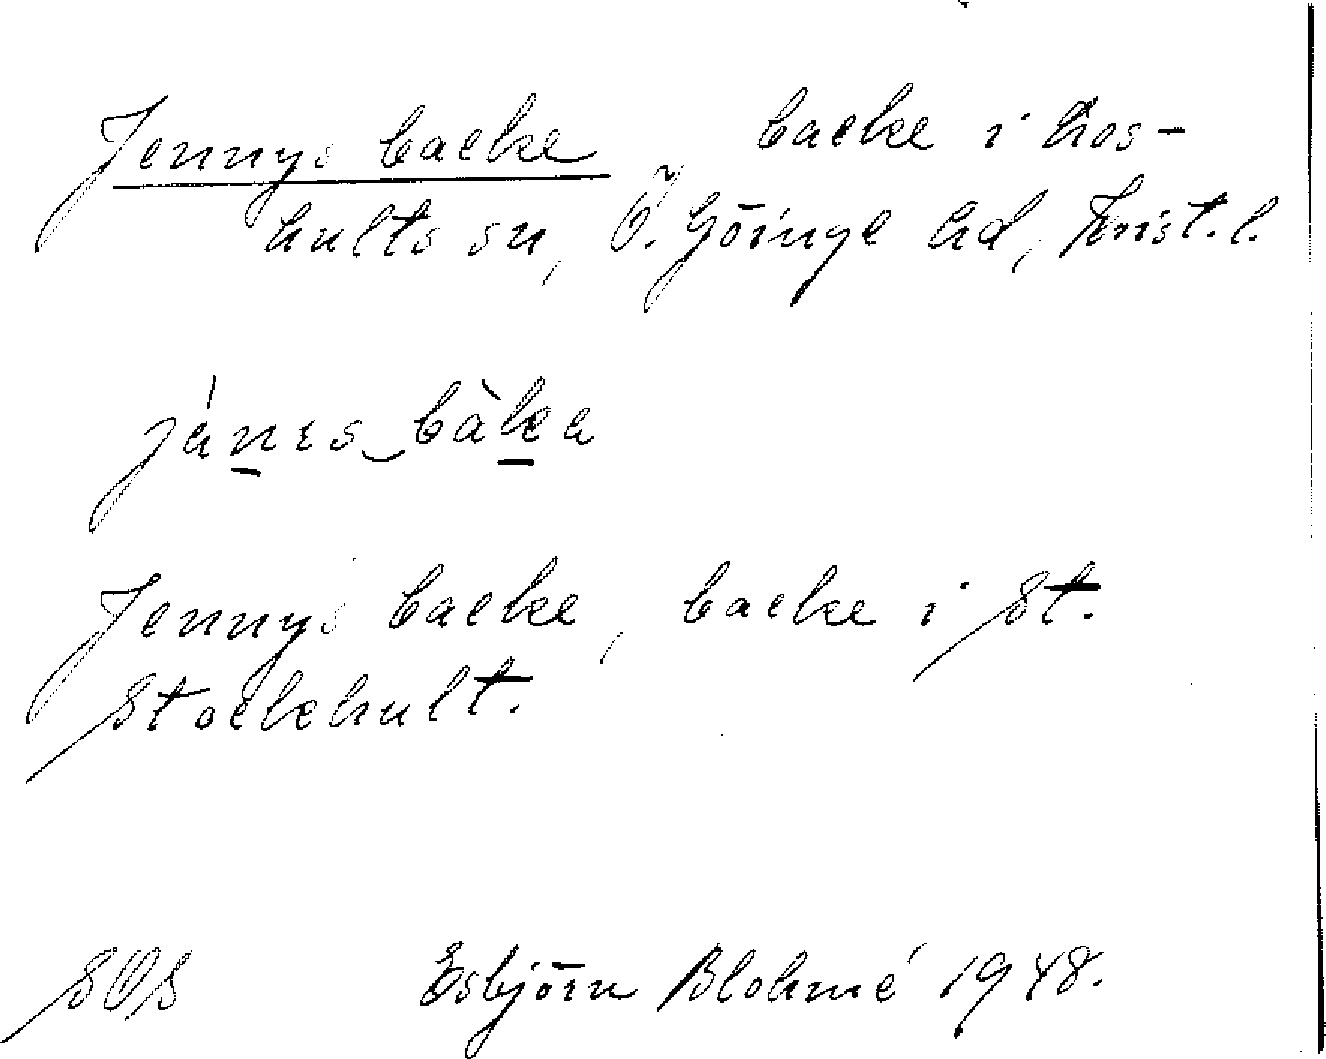 Jennys backe, backe i Hos-
hults sn, Ö. Göinge hd, Krist. l.
jánɪs bàka
Jennys backe, backe i St.
Stockhult.
SOS Esbjörn Blohmé 1948.